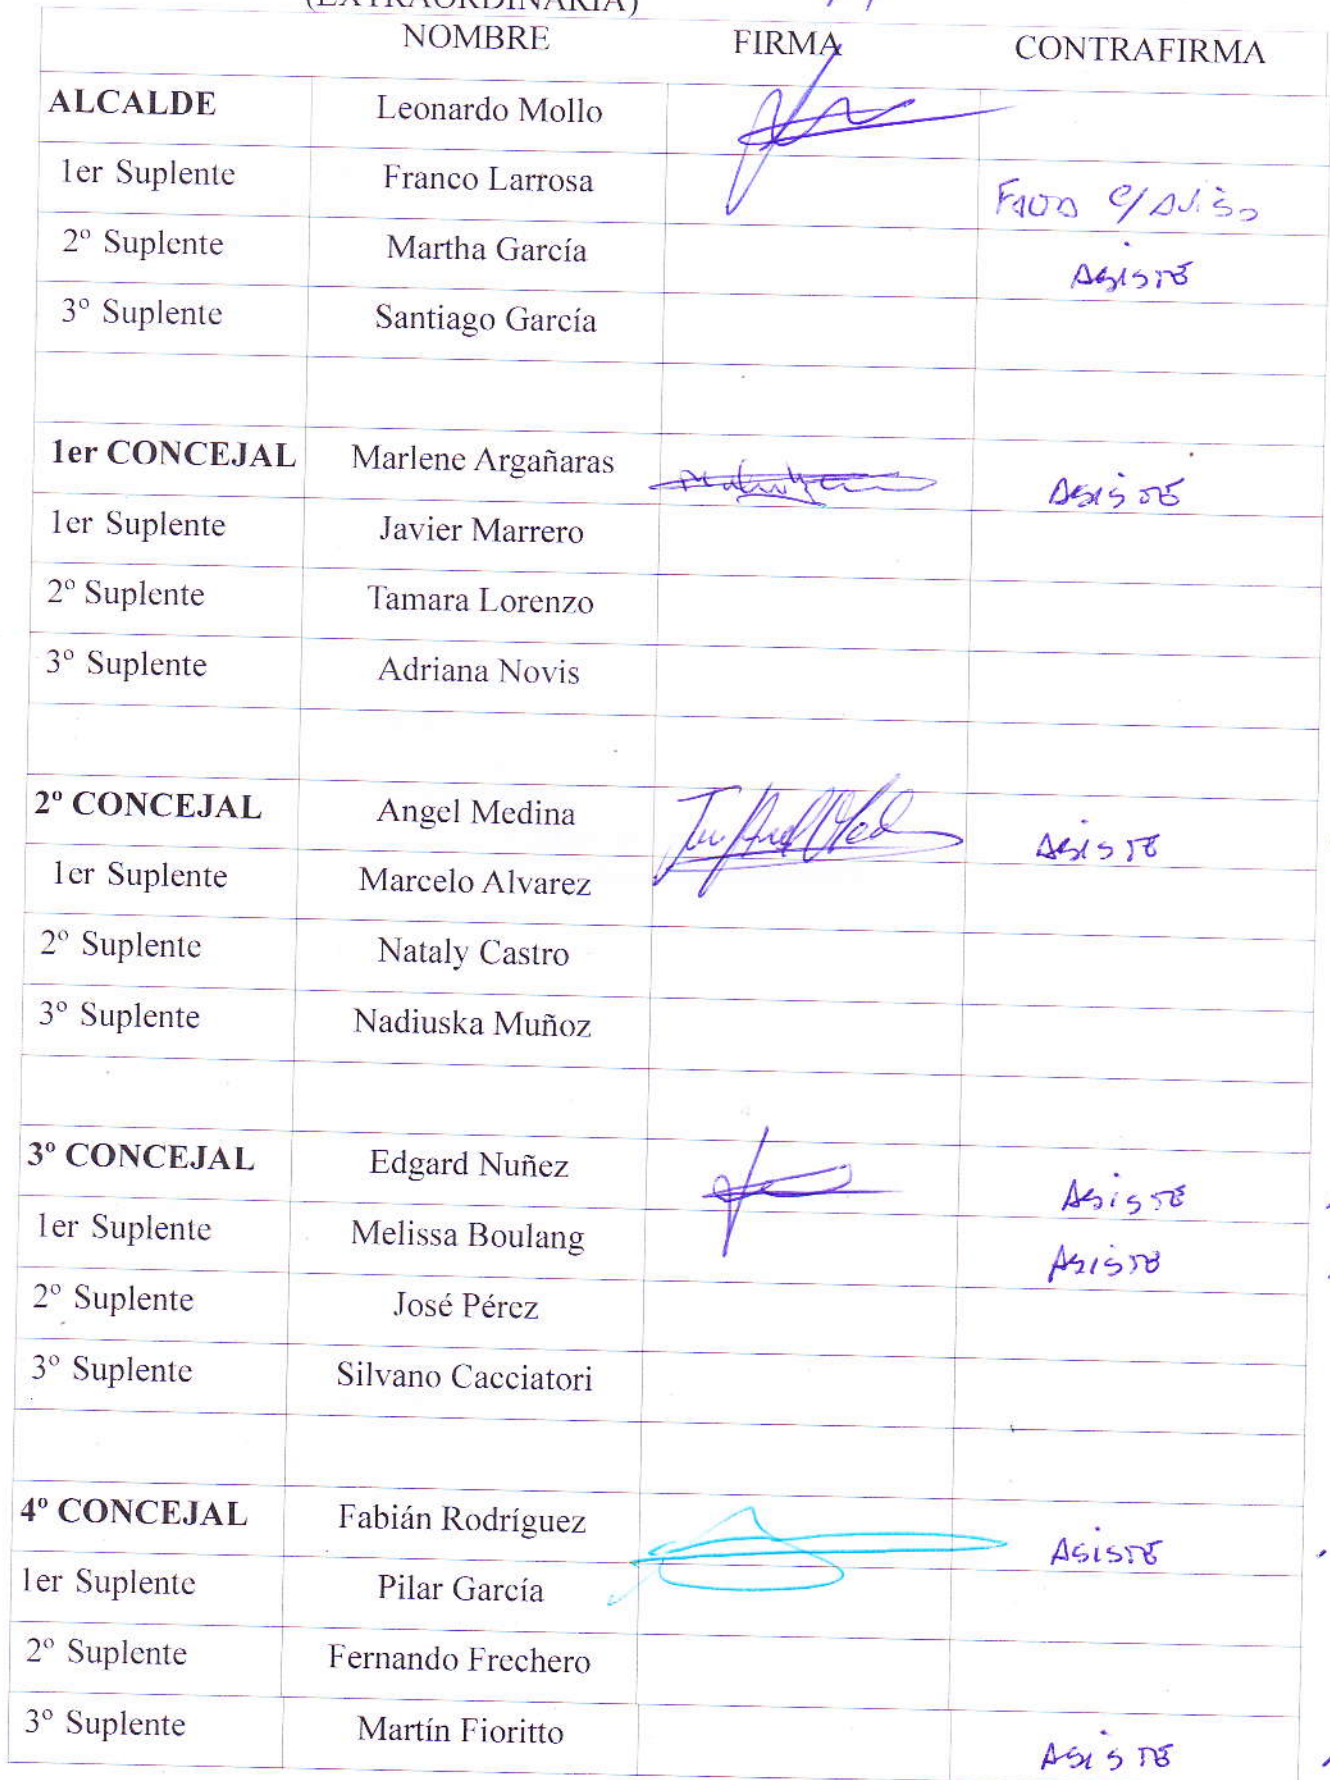 (EXTRAORDINARIA)
NOMBRE FIRMA CONTRAFIRMA
ALCALDE Leonardo Mollo
1er Suplente Franco Larrosa Falta c/aviso
2º Suplente Martha García Asiste
3º Suplente Santiago García
1er CONCEJAL Marlene Argañaras Asiste
1er Suplente Javier Marrero
2º Suplente Tamara Lorenzo
3º Suplente Adriana Novis
2º CONCEJAL Angel Medina Asiste
1er Suplente Marcelo Alvarez
2º Suplente Nataly Castro
3º Suplente Nadiuska Muñoz
3º CONCEJAL Edgard Nuñez Asiste
1er Suplente Melissa Boulang Asiste
2º Suplente José Pérez
3º Suplente Silvano Cacciatori
4º CONCEJAL Fabián Rodríguez Asiste
1er Suplente Pilar García
2º Suplente Fernando Frechero
3º Suplente Martín Fioritto Asiste